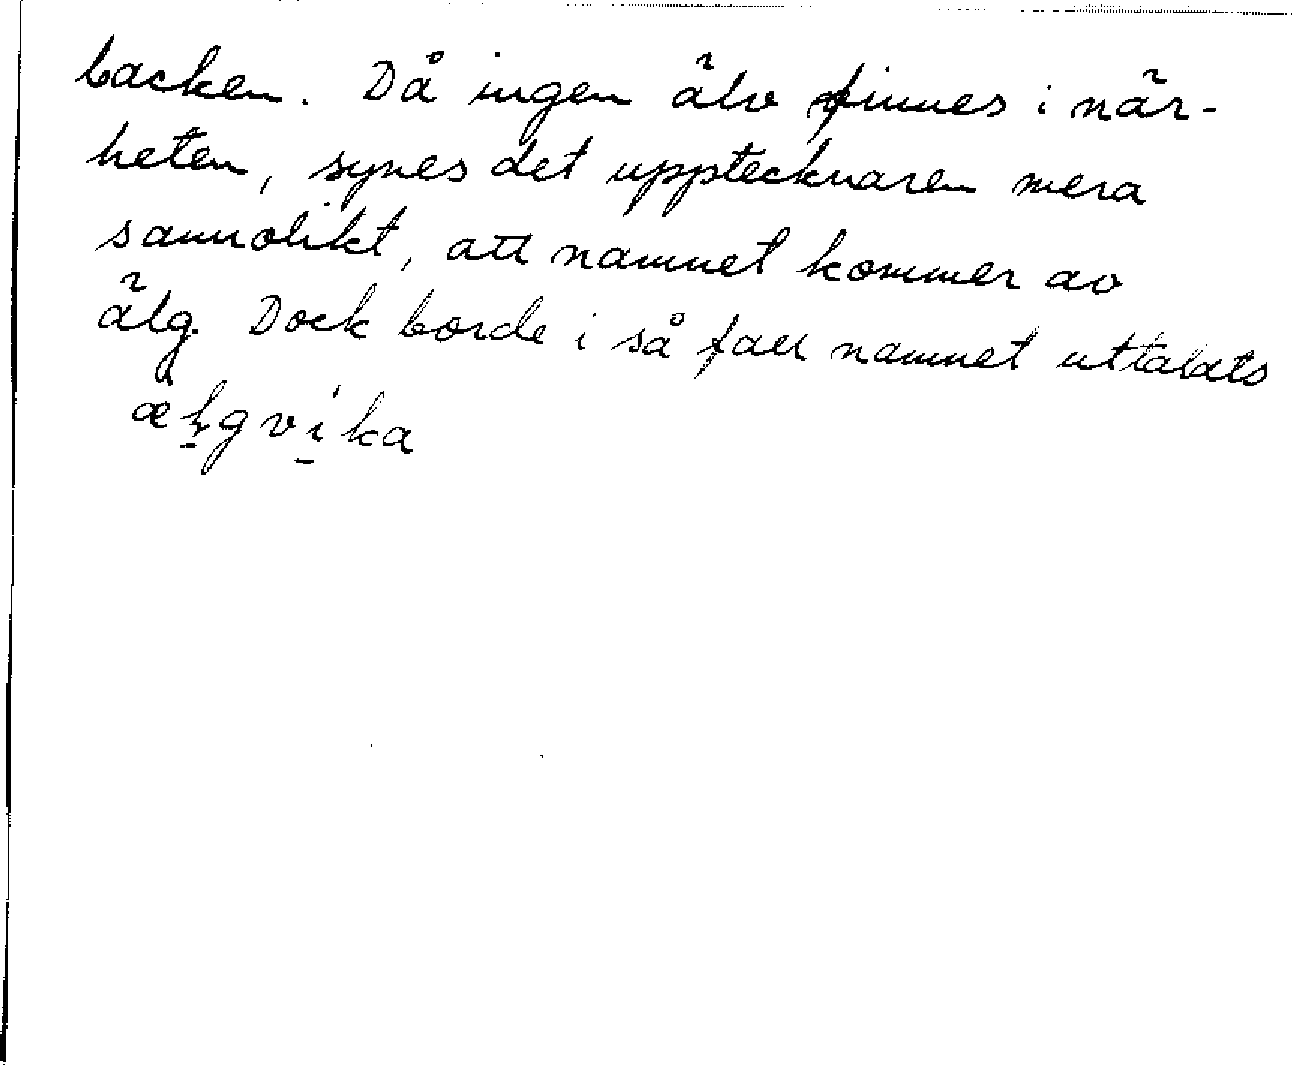 backen. Då ingen älv finnes i när-
heten, synes det upptecknaren mera
sannolikt, att namnet kommer av
älg. Dock borde i så fall namnet uttalats